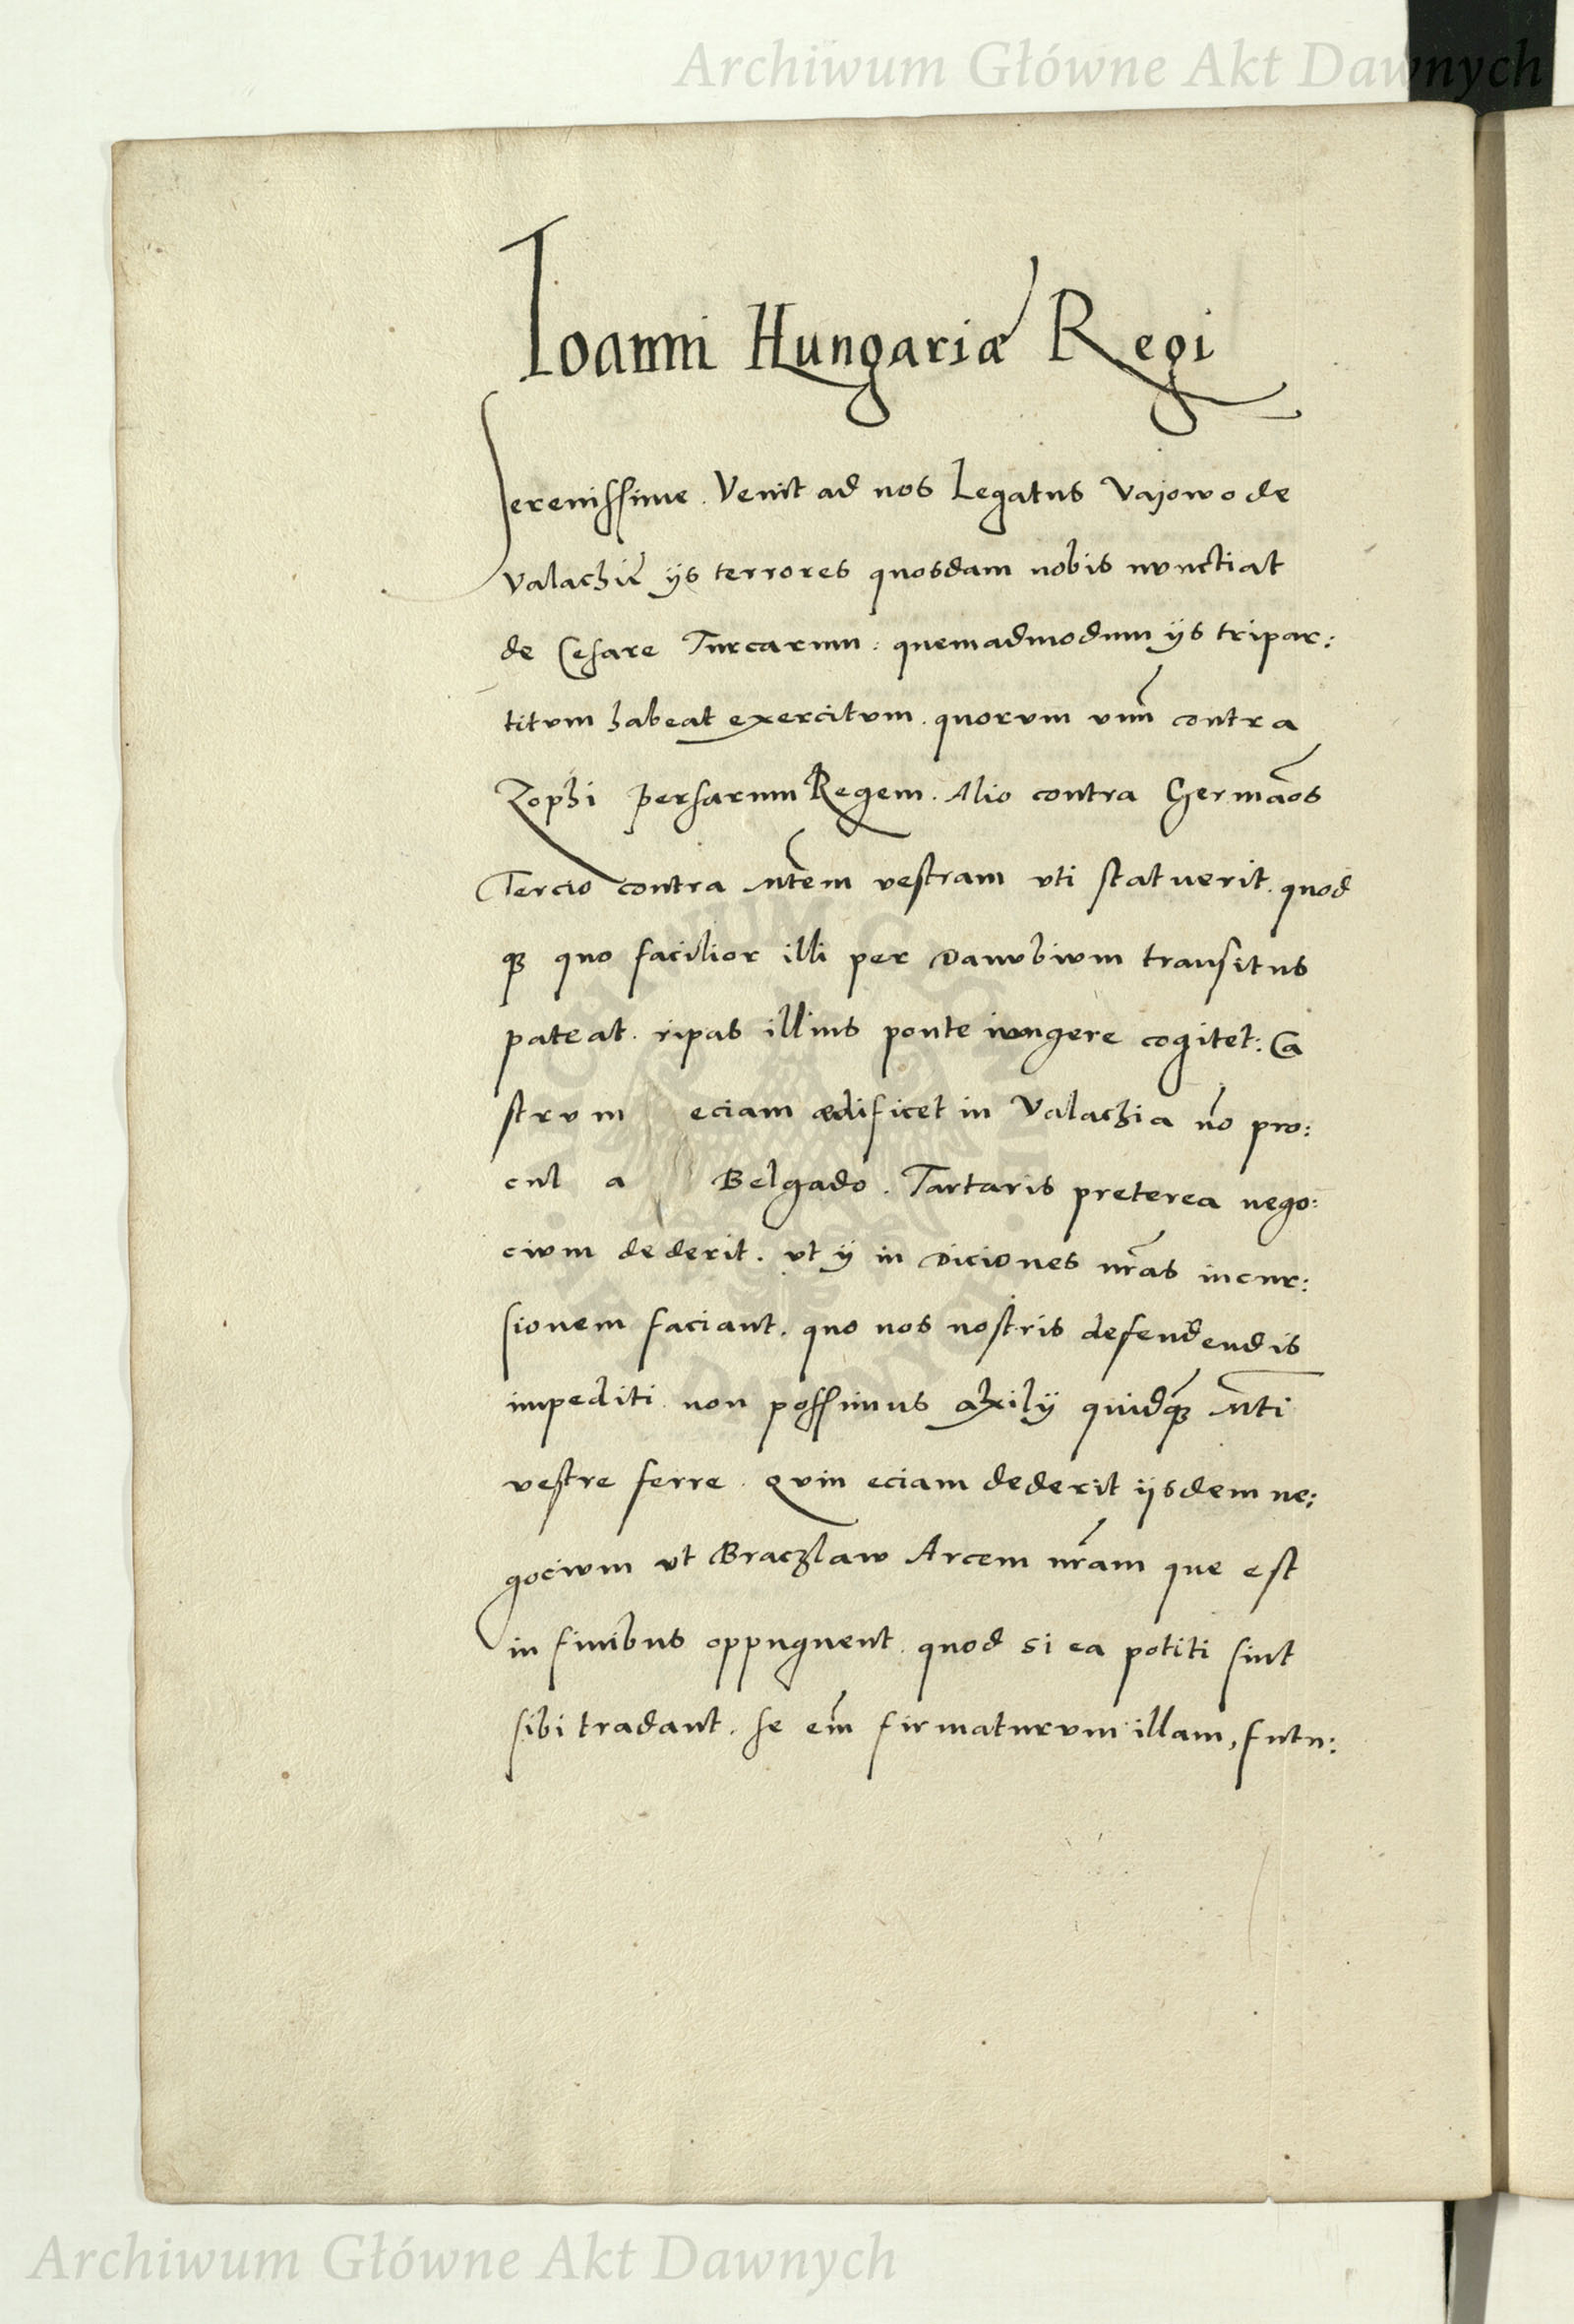 Archiwum Główne Akt Dawnych
Ioanni Hungariæ Regi
Serenissime. Venit ad nos Legatus Vajowode
Valachię ijs terrores quosdam nobis nunctiat
de Cesare Turcarum: quemadmodum ijs tripar:
titum habeat exercitum. quorum unū contra
Zophi persarum Regem. Alio contra Germāos
Tercio contra Mtem vestram uti statuerit. quod
qȝ quo facilior illi per Danubium transitus
pateat. ripas illius ponte iungere cogitet: Ca
strum eciam ædificet in Valachia nō pro:
cul a Belgado. Tartaris preterea nego:
cium dederit. ut ij in Diciones nr̄as incur:
sionem faciant. quo nos nostris defendendis
impediti non possimus auxilij quidqȝ Mti
vestre ferre. Quin eciam dederit ijsdem ne:
gocium ut Braczlaw Arcem nr̄am que est
in finibus oppugnent. quod si ea potiti sint
sibi tradant. se em̄ firmaturum illam, futu:
Archiwum Główne Akt Dawnych